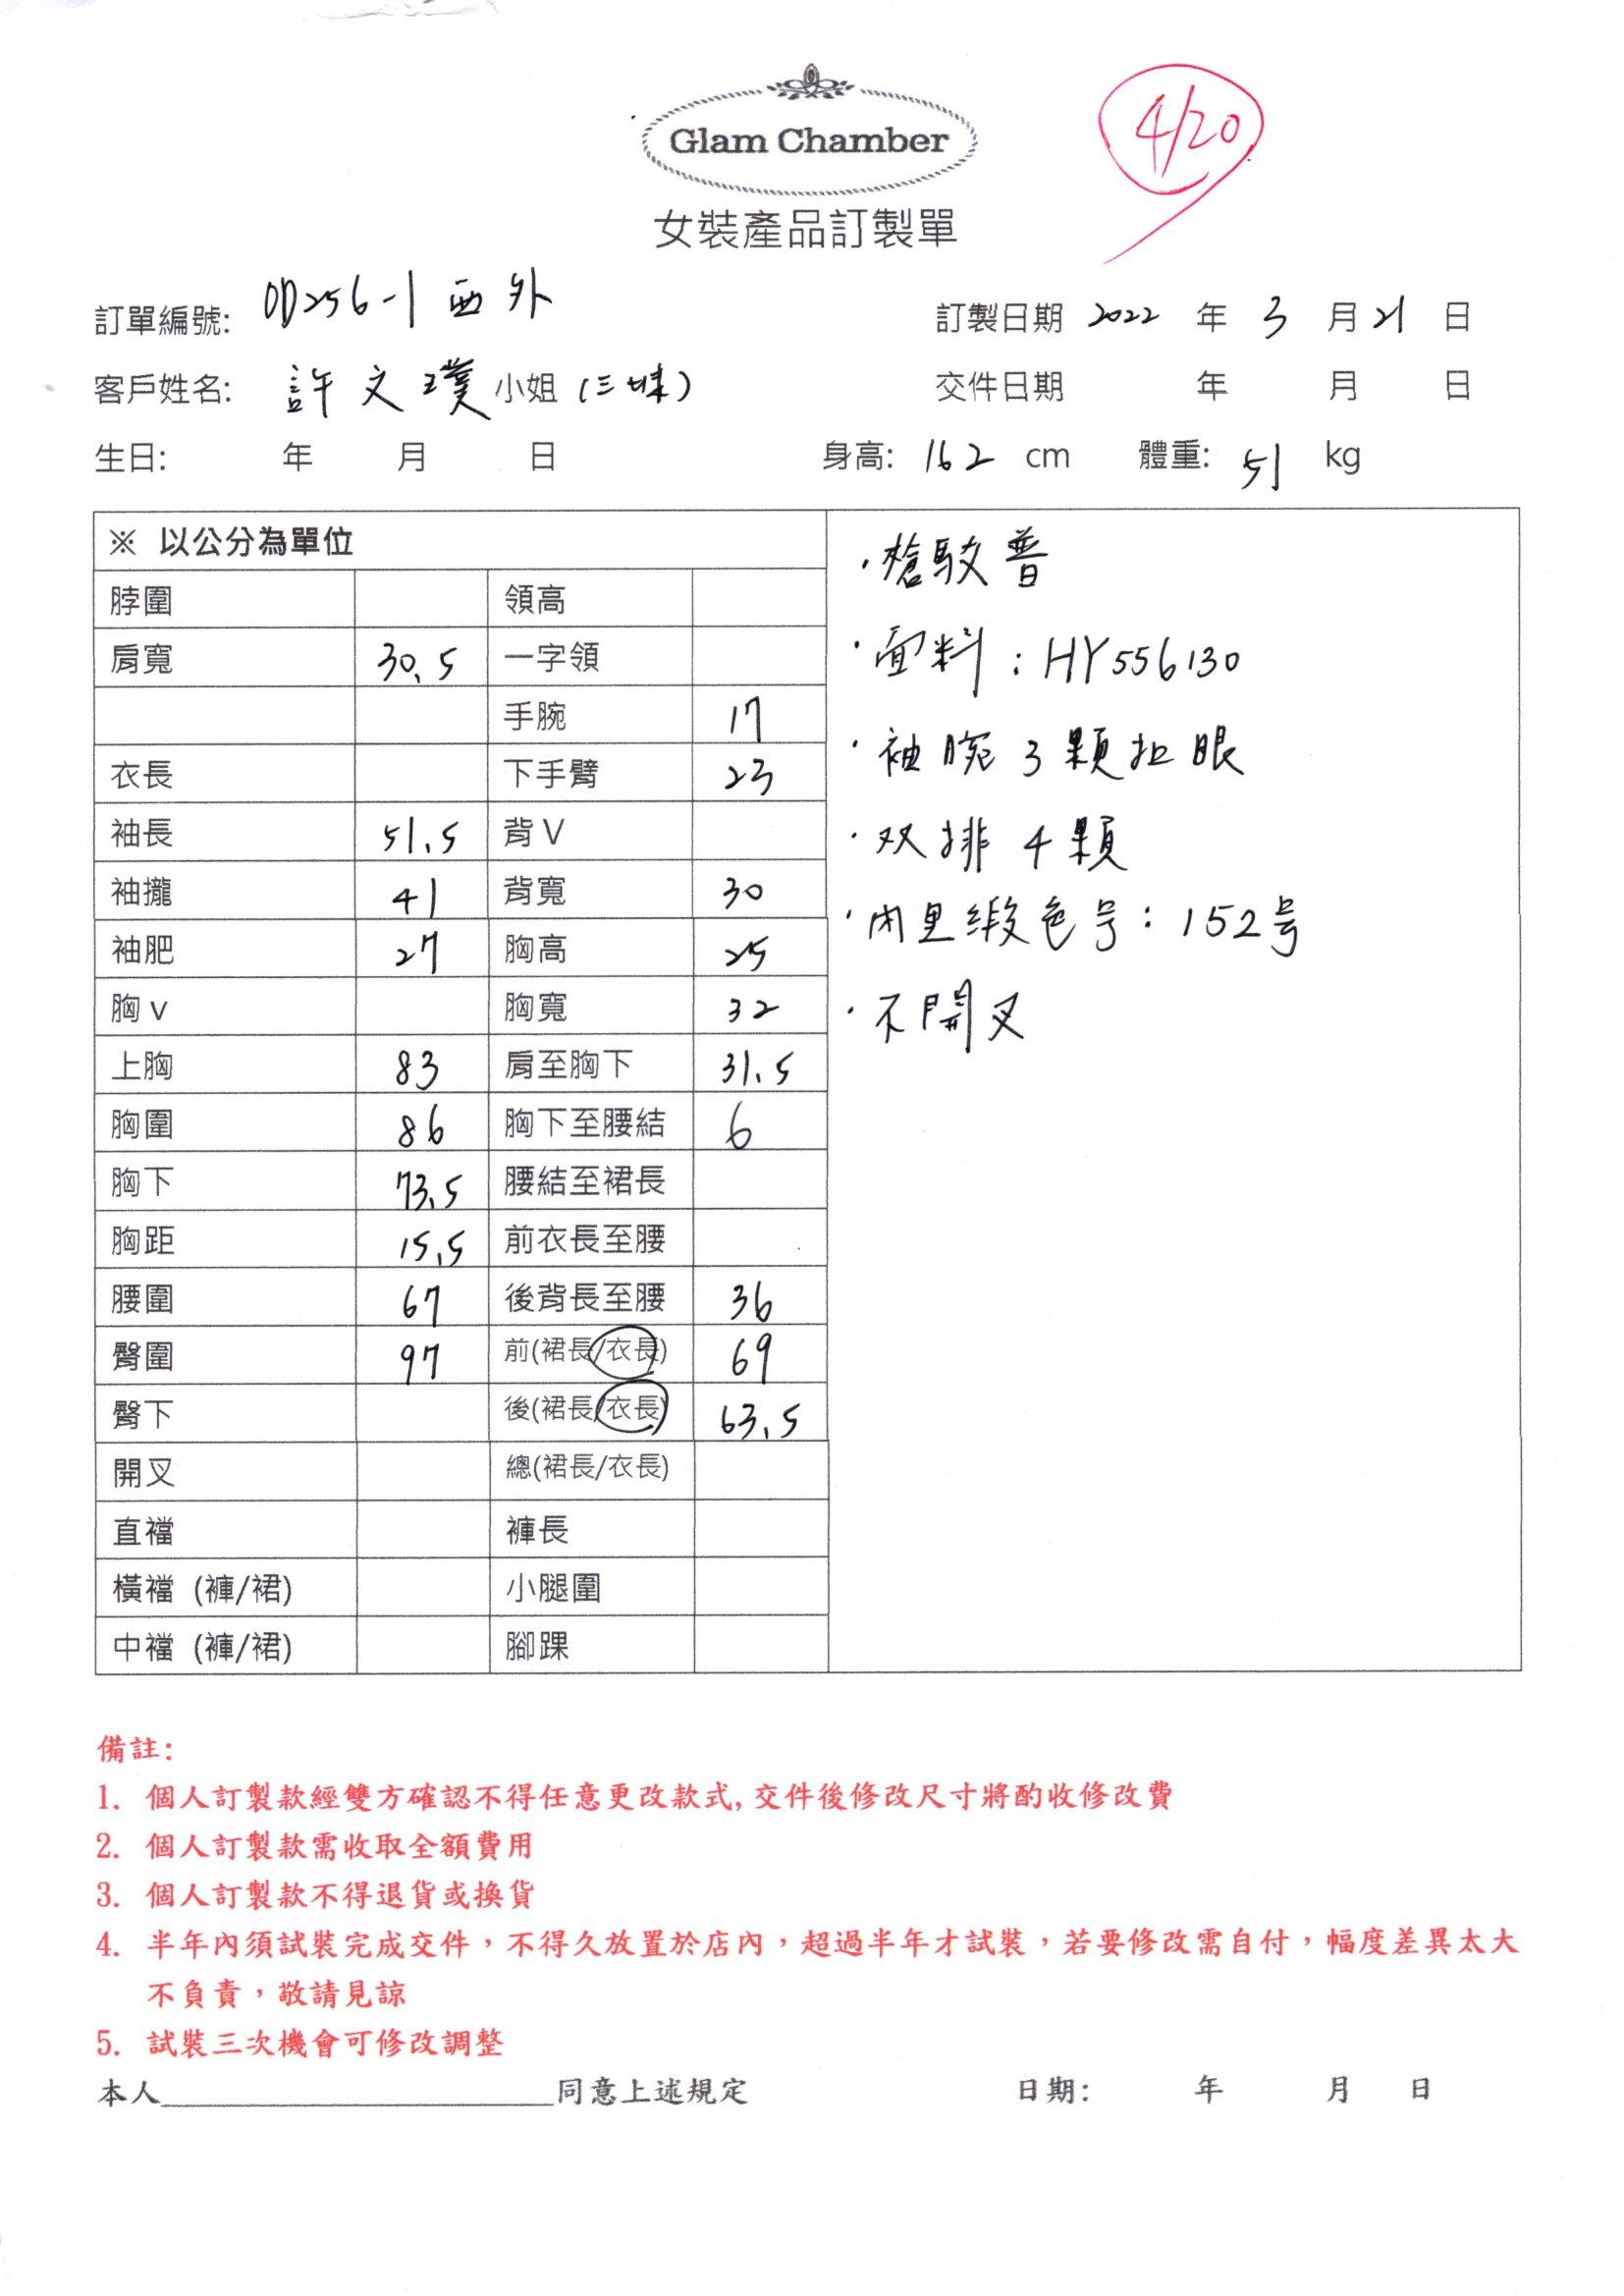 Glam Chamber
4/20
女裝產品訂製單
訂單編號: OD256-1 西外
訂製日期 2022 年 3 月 21 日
客戶姓名: 許文璞 小姐 (三妹)
交件日期 年 月 日
生日: 年 月 日 身高: 162 cm 體重: 51 kg
※ 以公分為單位
脖圍 領高
肩寬 30.5 一字領
手腕 17
衣長 下手臂 23
袖長 51.5 背V
袖攏 41 背寬 30
袖肥 27 胸高 25
胸v 胸寬 32
上胸 83 肩至胸下 31.5
胸圍 86 胸下至腰結 6
胸下 73.5 腰結至裙長
胸距 15.5 前衣長至腰
腰圍 67 後背長至腰 36
臀圍 97 前(裙長/衣長) 69
臀下 後(裙長/衣長) 63.5
開叉 總(裙長/衣長)
直襠 褲長
橫襠 (褲/裙) 小腿圍
中襠 (褲/裙) 腳踝
·槍駁普
·面料:HY556130
·袖腕3顆扣眼
·双排4顆
·內里緞色号:152号
·不開叉
備註:
1. 個人訂製款經雙方確認不得任意更改款式,交件後修改尺寸將酌收修改費
2. 個人訂製款需收取全額費用
3. 個人訂製款不得退貨或換貨
4. 半年內須試裝完成交件,不得久放置於店內,超過半年才試裝,若要修改需自付,幅度差異太大
不負責,敬請見諒
5. 試裝三次機會可修改調整
本人____________________同意上述規定 日期: 年 月 日